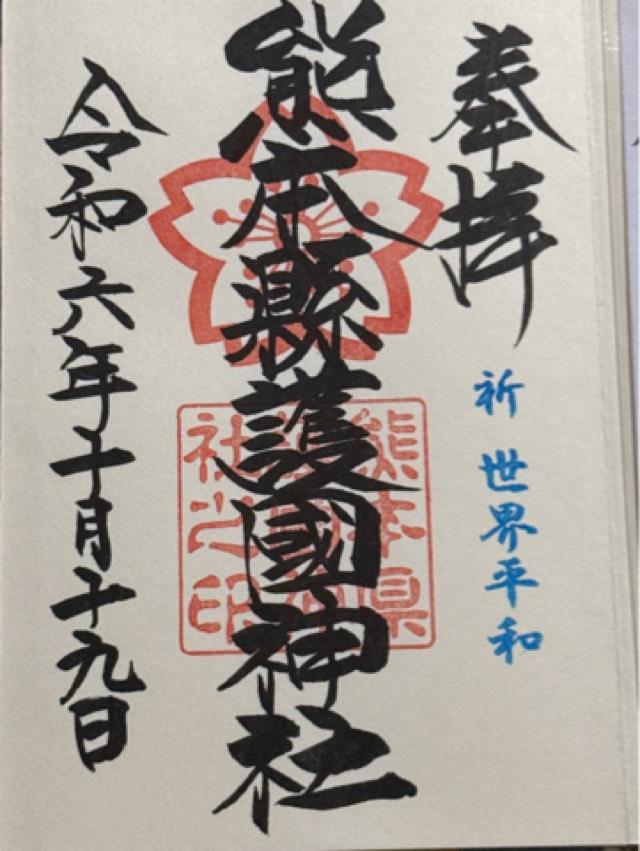 奉拝
祈 世界平和
熊本縣護國神社
熊本県
社之印
令和六年十月十九日